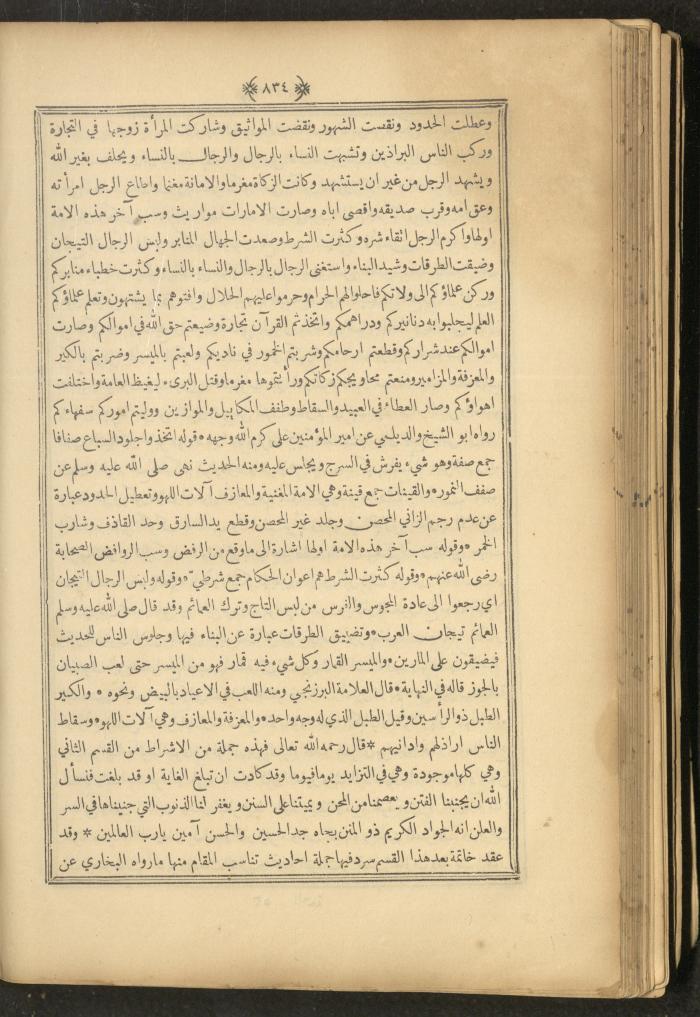 ٨٣٤
وعطلت الحدود ونقصت الشهور ونقضت المواثيق وشاركت المرأة زوجها في التجارة
وركب الناس البراذين وتشبهت النساء بالرجال والرجال بالنساء ويحلف بغير الله
ويشهد الرجل من غير ان يستشهد وكانت الزكاة مغرما والامانة مغنما واطاع الرجل امرأته
وعق امه وقرب صديقه واقصى اباه وصارت الامارات مواريث وسب آخر هذه الامة
اولها واكرم الرجل اتقاء شره وكثرت الشرط وصعدت الجهال المنابر ولبس الرجال التيجان
وضيقت الطرقات وشيد البناء واستغنى الرجال بالرجال والنساء بالنساء وكثرت خطباء منابركم
وركن علماؤكم الى ولاتكم فاحلوا لهم الحرام وحرموا عليهم الحلال وافتوهم بما يشتهون وتعلم علماؤكم
العلم ليجلبوا به دنانيركم ودراهمكم واتخذتم القرآن تجارة وضيعتم حق الله في اموالكم وصارت
اموالكم عند شراركم وقطعتم ارحامكم وشربتم الخمور في ناديكم ولعبتم بالميسر وضربتم بالكبر
والمعزفة والمزامير ومنعتم محاويجكم زكاتكم ورأيتموها مغرما وقتل البرىء ليغيظ العامة واختلفت
اهواؤكم وصار العطاء في العبيد والسقاط وطفف المكاييل والموازين ووليتم اموركم سفهاءكم
رواه ابو الشيخ والديلمي عن امير المؤمنين على كرم الله وجهه • قوله اتخذوا جلود السباع صفافا
جمع صفة وهو شيء يفرش في السرج ويجلس عليه ومنه الحديث نهى صلى الله عليه وسلم عن
صفف النمور • والقينات جمع قينة وهي الامة المغنية والمعازف آلات اللهو وتعطيل الحدود عبارة
عن عدم رجم الزاني المحصن وجلد غير المحصن وقطع يد السارق وحد القاذف وشارب
الخمر • وقوله سب آخر هذه الامة اولها اشارة الى ما وقع من الرفض وسب الروافض الصحابة
رضى الله عنهم • وقوله كثرت الشرط هم اعوان الحكام جمع شرطي • وقوله ولبس الرجال التيجان
اي رجعوا الى عادة المجوس والفرس من لبس التاج وترك العمائم وقد قال صلى الله عليه وسلم
العمائم تيجان العرب • وتضييق الطرقات عبارة عن البناء فيها وجلوس الناس للحديث
فيضيقون على المارين • والميسر القمار وكل شيء فيه قمار فهو من الميسر حتى لعب الصبيان
بالجوز قاله في النهاية • قال العلامة البرزنجي ومنه اللعب في الاعياد بالبيض ونحوه • والكبر
الطبل ذو الرأسين وقيل الطبل الذي له وجه واحد • والمعزفة والمعازف وهي آلات اللهو • وسقاط
الناس اراذلهم وادانيهم * قال رحمه الله تعالى فهذه جملة من الاشراط من القسم الثاني
وهي كلها موجودة وهي في التزايد يوما فيوما وقد كادت ان تبلغ الغاية او قد بلغت فنسأل
الله ان يجنبنا الفتن ويعصمنا من المحن ويميتنا على السنن ويغفر لنا الذنوب التي جنيناها في السر
والعلن انه الجواد الكريم ذو المنن بجاه جد الحسين والحسن آمين يارب العالمين * وقد
عقد خاتمة بعد هذا القسم سرد فيها جملة احاديث تناسب المقام منها ما رواه البخاري عن